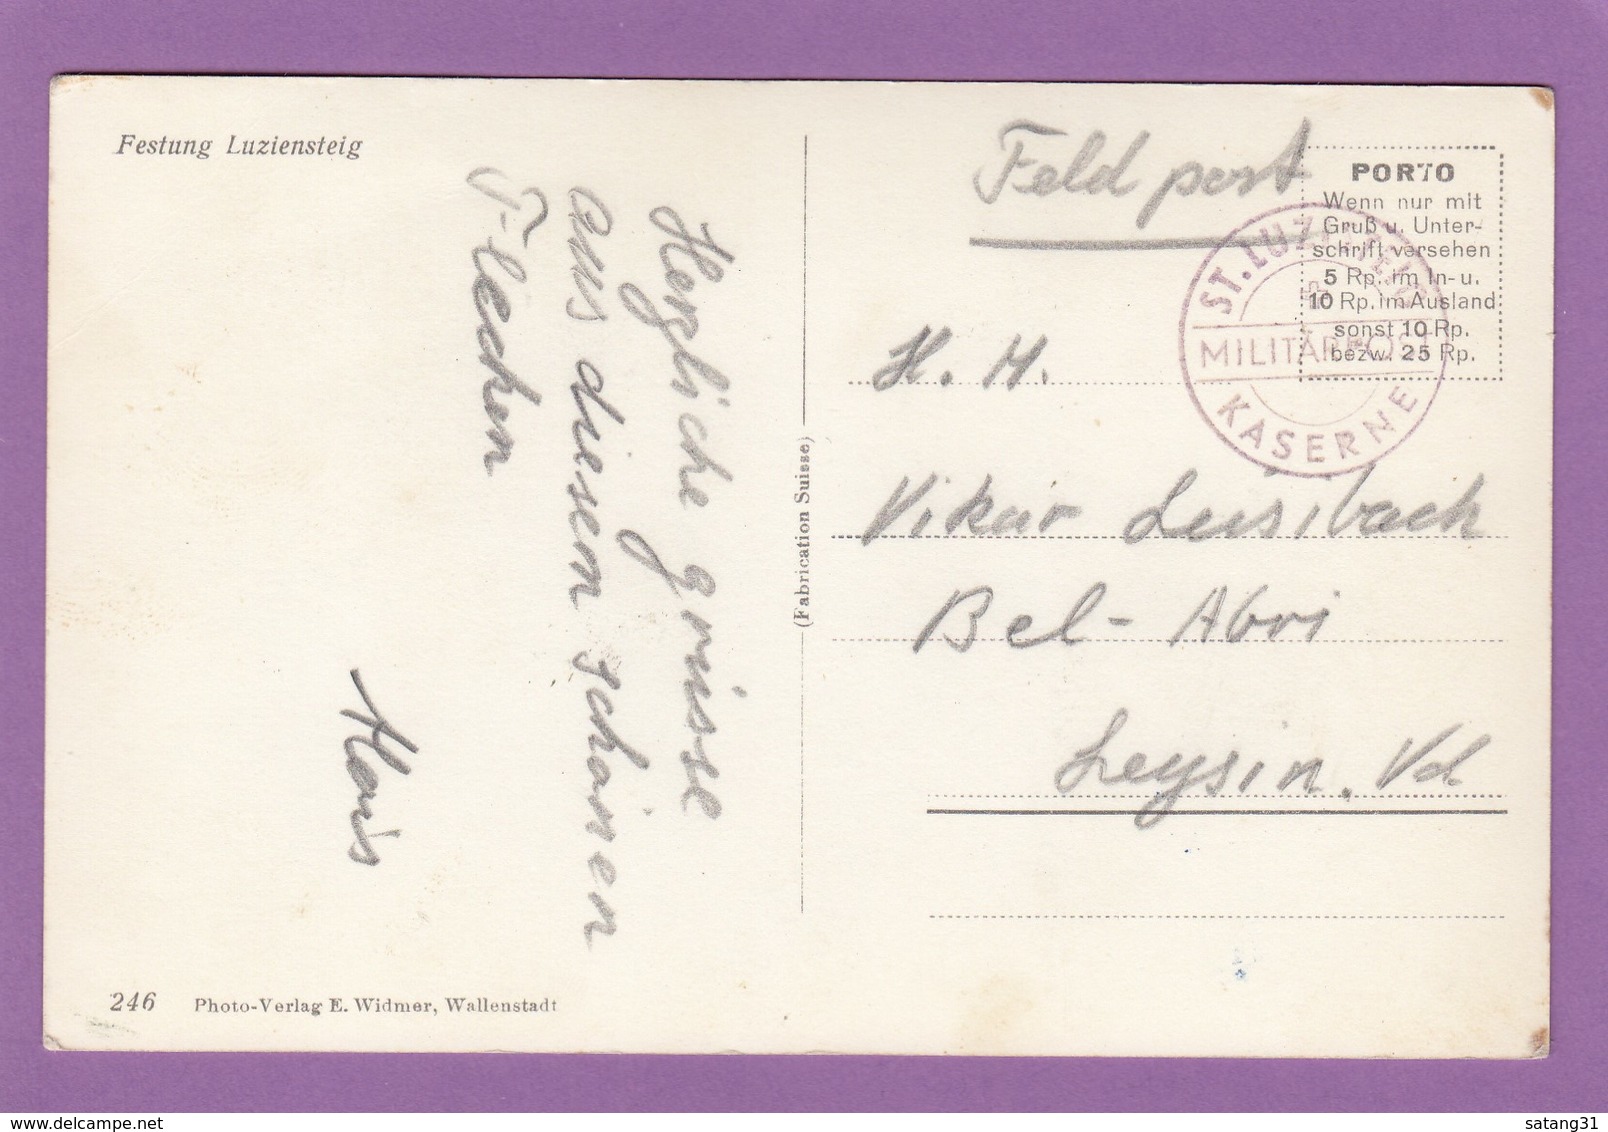 Festung Luziensteig
Herzliche grüsse
aus diesem schönen
Flecken
Hans
246 Photo-Verlag E. Widmer, Wallenstadt
(Fabrication Suisse)
Feldpost
PORTO
Wenn nur mit
Gruß u. Unter-
schrift versehen
5 Rp. im In- u.
10 Rp. im Ausland
sonst 10 Rp.
bezw. 25 Rp.
ST. LUZISTEIG
MILITÄRPOST
KASERNE
H. H.
Vikar
Bel-Abri
Leysin. Vd
satang31